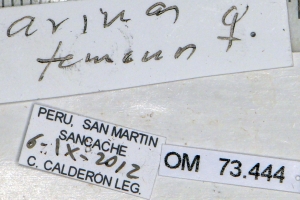 arinas g.
PERU, SAN MARTIN
SANCACHE
6-IX-2012
C. CALDERÓN LEG.
OM 73.444